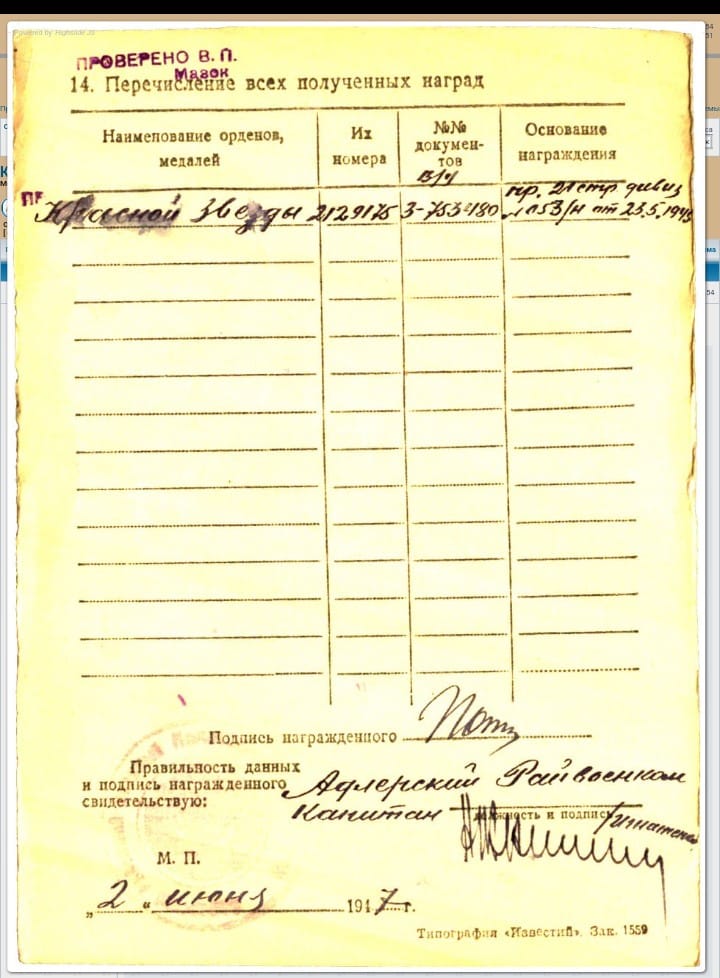 Powered by Highslide JS
ПРОВЕРЕНО В. П.
Мазок
14. Перечисление всех полученных наград
Наименование орденов, медалей
Их номера
№№ документов
В/ч
Основание награждения
ПР
Красной Звезды 2129175 3-753480 пр. 21 стр дивиз
№ 053/н от 23.5.194
Подпись награжденного
Правильность данных
и подпись награжденного Адлерский Райвоенком
свидетельствую: Капитан
должность и подпись
М. П.
„ 2 “ июня 1947 г.
Типография «Известий». Зак. 1559